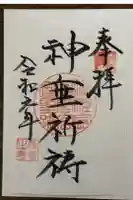 奉拝
神垂祈祷
令和元年